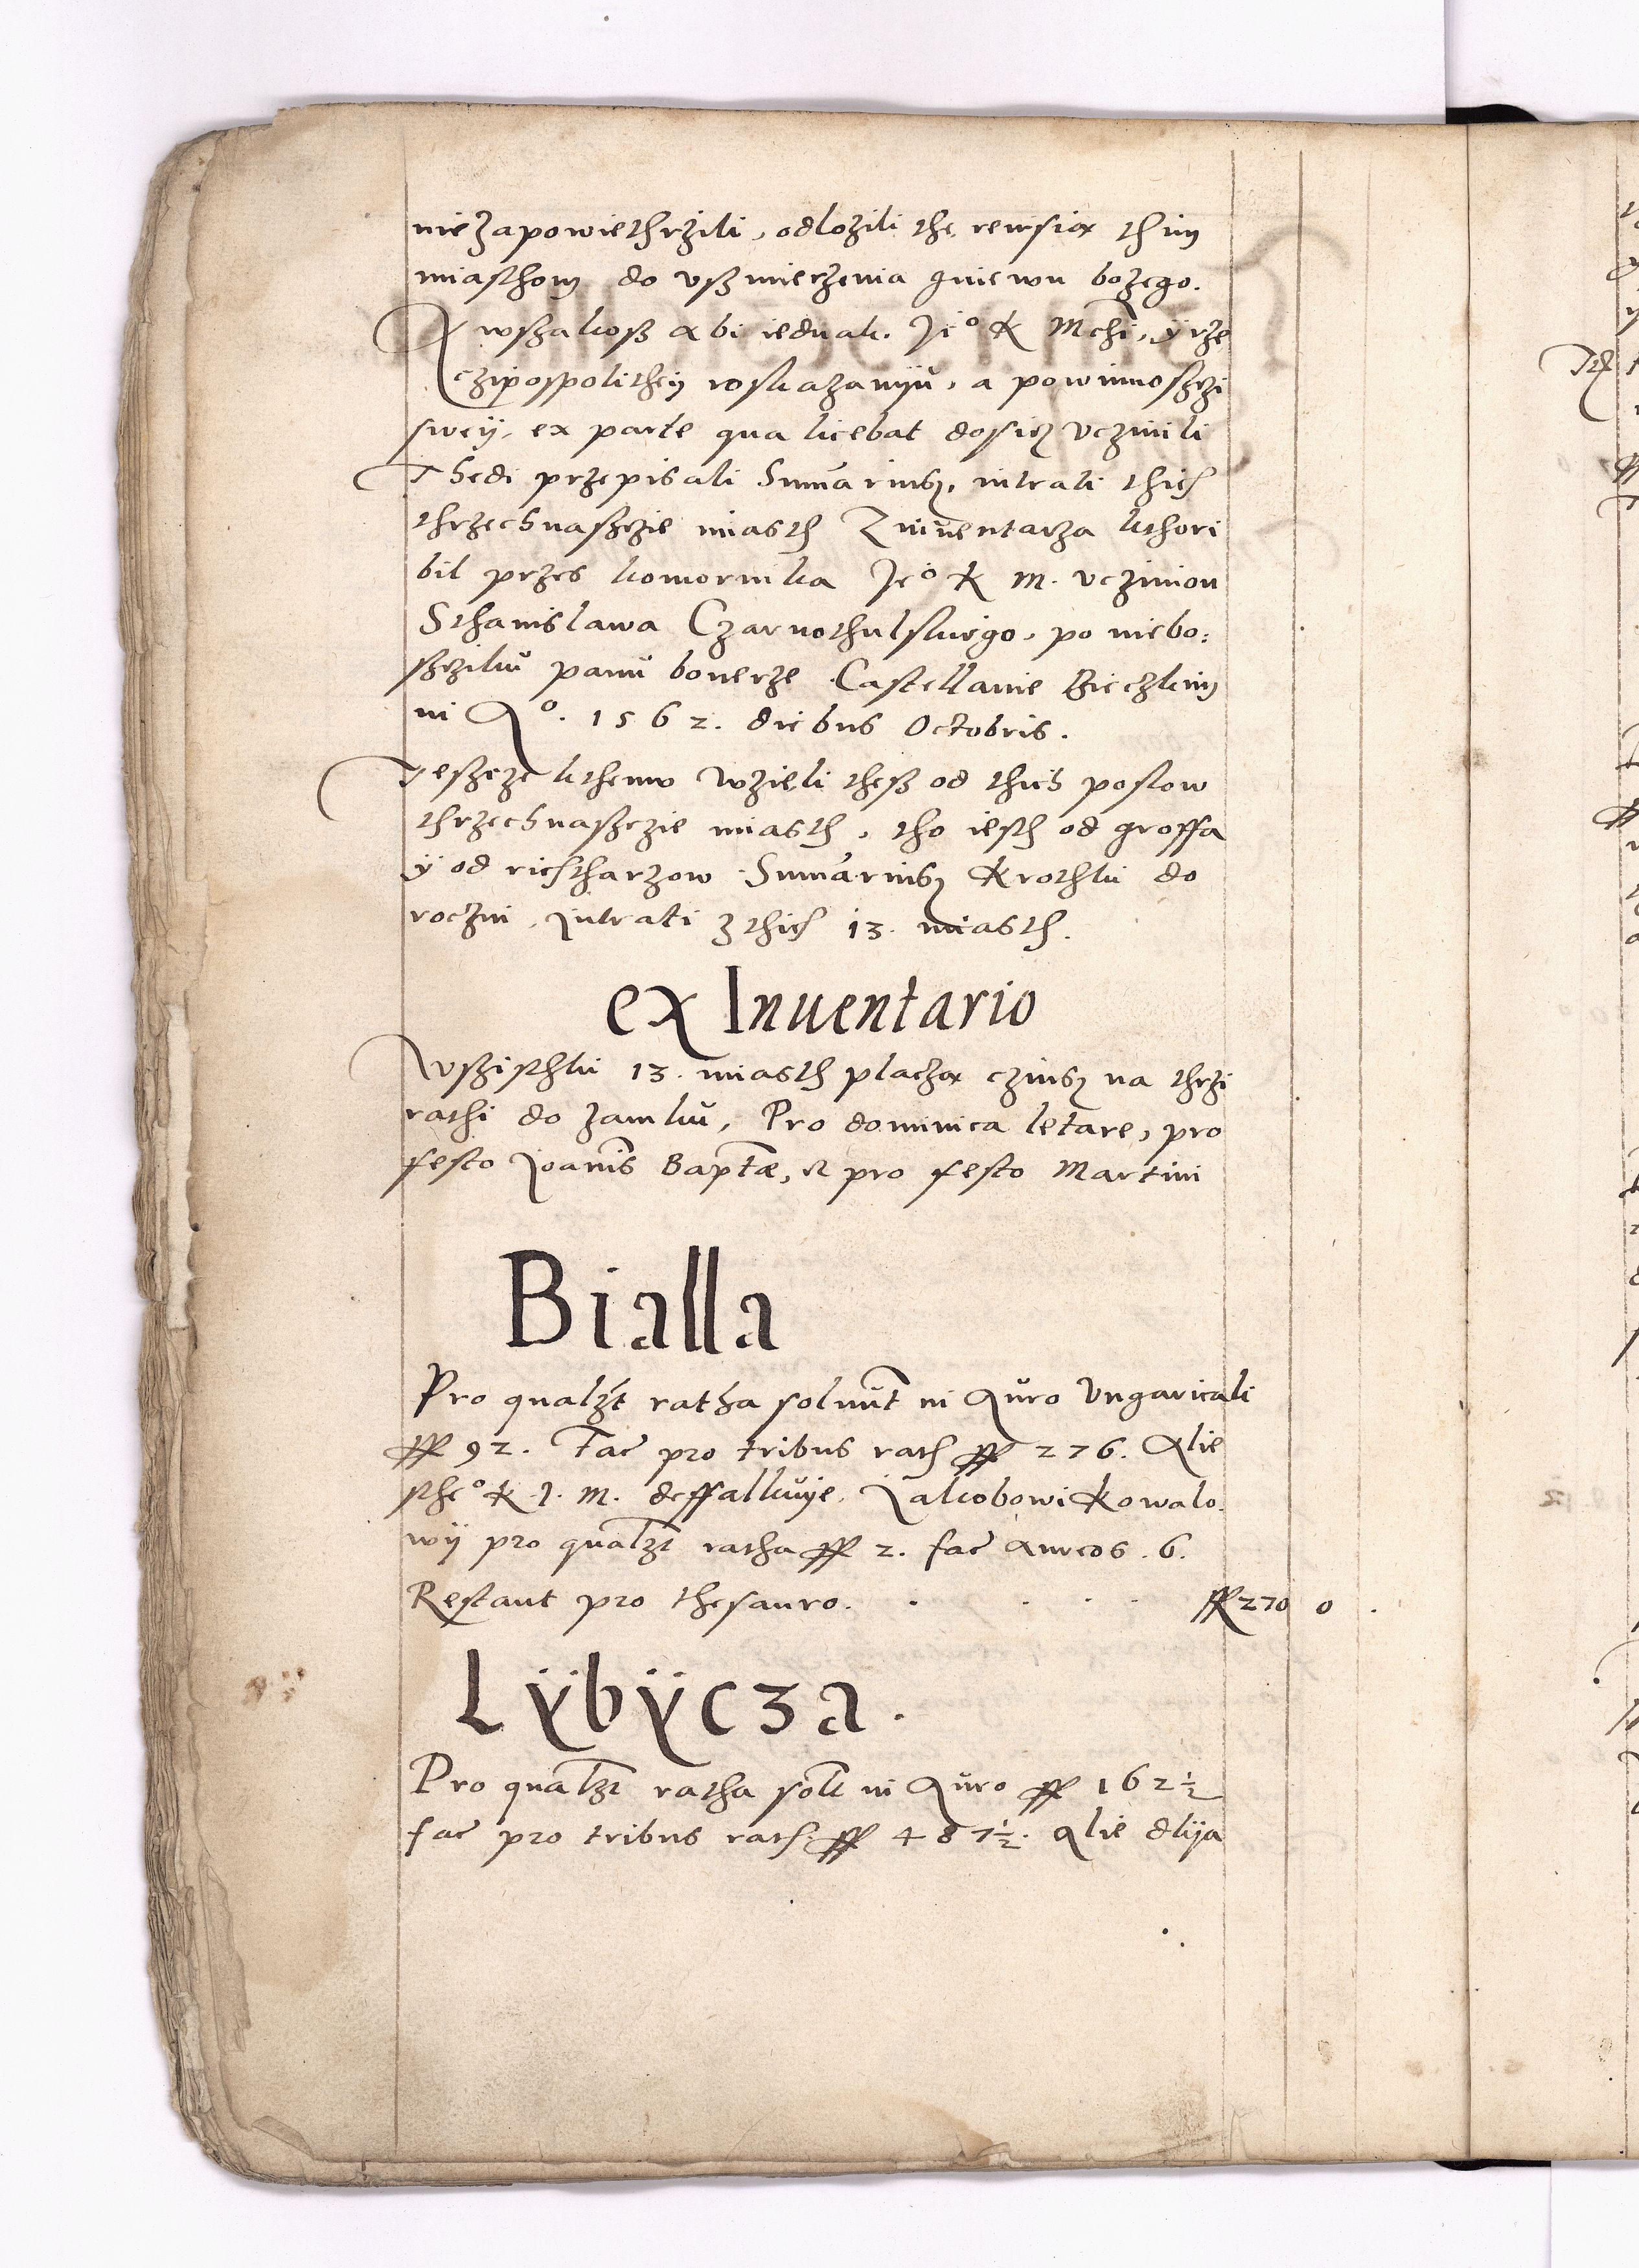 nie zapowiethrzili, odlozili the rewisią thim
miasthom do vsmierzenia gniewu bozego.
A wszakosz abi iednak Je° K Mchi, ÿ rze
czipospolithey roskazanÿu, a powinnosczi
swey, ex parte qua licebat dosicz vczinili
Thedi przepisali Sumariusz, intrati thich
thrzechnasczie miasth Z inuentarza kthori
bil przes komornika Je° K M. vczinion
Sthanislawa Czarnothulskiego, po niebo:
szczikú panu bonerze Castellanie Bieczkim
in A°. 1562. diebus Octobris.
Jeszcze kthemu wzieli thesz od thich poslow
thrzechnasczie miasth, tho iesth od groffa
ÿ od richtharzow Sumariusz Krothki do
roczni, Intrati z thich 13. miasth.
ex Inuentario
Wszisthki 13. miasth placzą czinsz na thrzi
rathi do zamku, Pro dominica letare, pro
festo Joanis Baptæ, & pro festo Martini
Bialla
Pro qualzt ratha soluut in Auro Vngaricali
ff 92. Fac pro tribus rath ff 276. Alie
sthe° K J. M. deffalkuÿe Jakobowi Kowalo.
wÿ pro qualzt ratha ff 2. fac Aureos. 6.
Restant pro thesauro. . . . . ff 270 0 .
Lÿbÿcza.
Pro qualzt ratha solt in Auro ff 162 ½
fac pro tribus rath ff 487 ½. Alie dlÿa